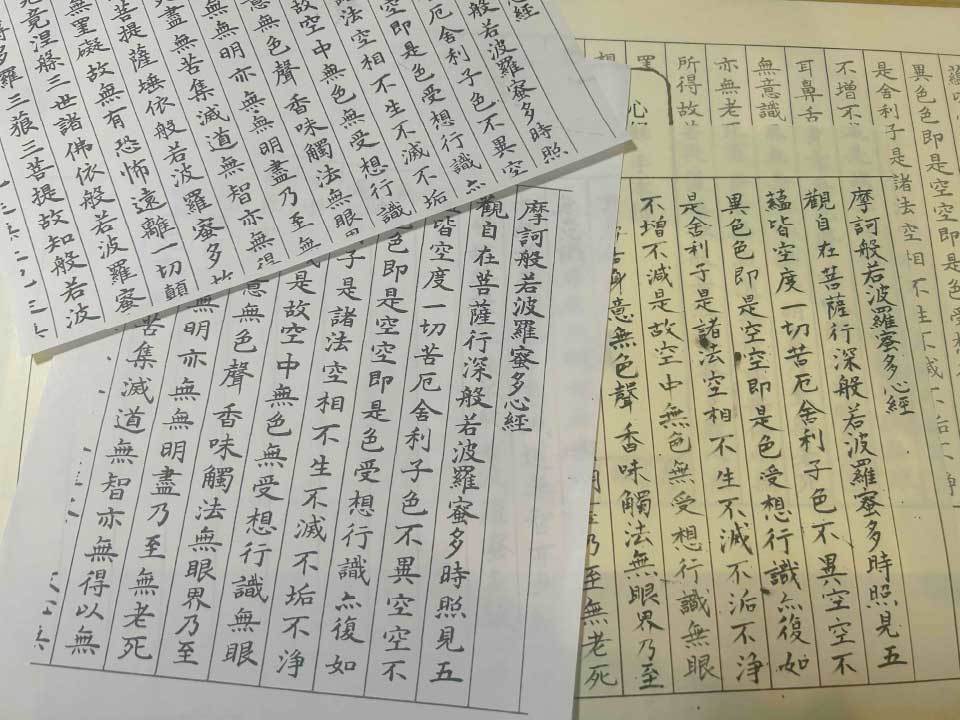 異色色即是空空即是色受想
是舍利子是諸法空相不生不滅不垢不淨
不增不
耳鼻舌
無意識
亦無老
所得故
罣
想
心
摩訶般若波羅蜜多心經
觀自在菩薩行深般若波羅蜜多時照見五
蘊皆空度一切苦厄舍利子色不異空空不
異色色即是空空即是色受想行識亦復如
是舍利子是諸法空相不生不滅不垢不淨
不增不減是故空中無色無受想行識無眼
身意無色聲香味觸法無眼界乃至
乃至無老死
摩訶般若波羅蜜多心經
觀自在菩薩行深般若波羅蜜多時照見五
皆空度一切苦厄舍利子色不異空空不
色即是空空即是色受想行識亦復如
子是諸法空相不生不滅不垢不淨
是故空中無色無受想行識無眼
意無色聲香味觸法無眼界乃至
無明亦無無明盡乃至無老死
苦集滅道無智亦無得以無
心經
般若波羅蜜多時照
厄舍利子色不異空
即是色受想行識亦
法空相不生不滅不垢
故空中無色無受想行識
無色聲香味觸法無眼
無明亦無無明盡乃至無
盡無苦集滅道無智亦無得
菩提薩埵依般若波羅蜜多故
無罣礙故無有恐怖遠離一切顛
究竟涅槃三世諸佛依般若波羅蜜
多羅三藐三菩提故知般若波